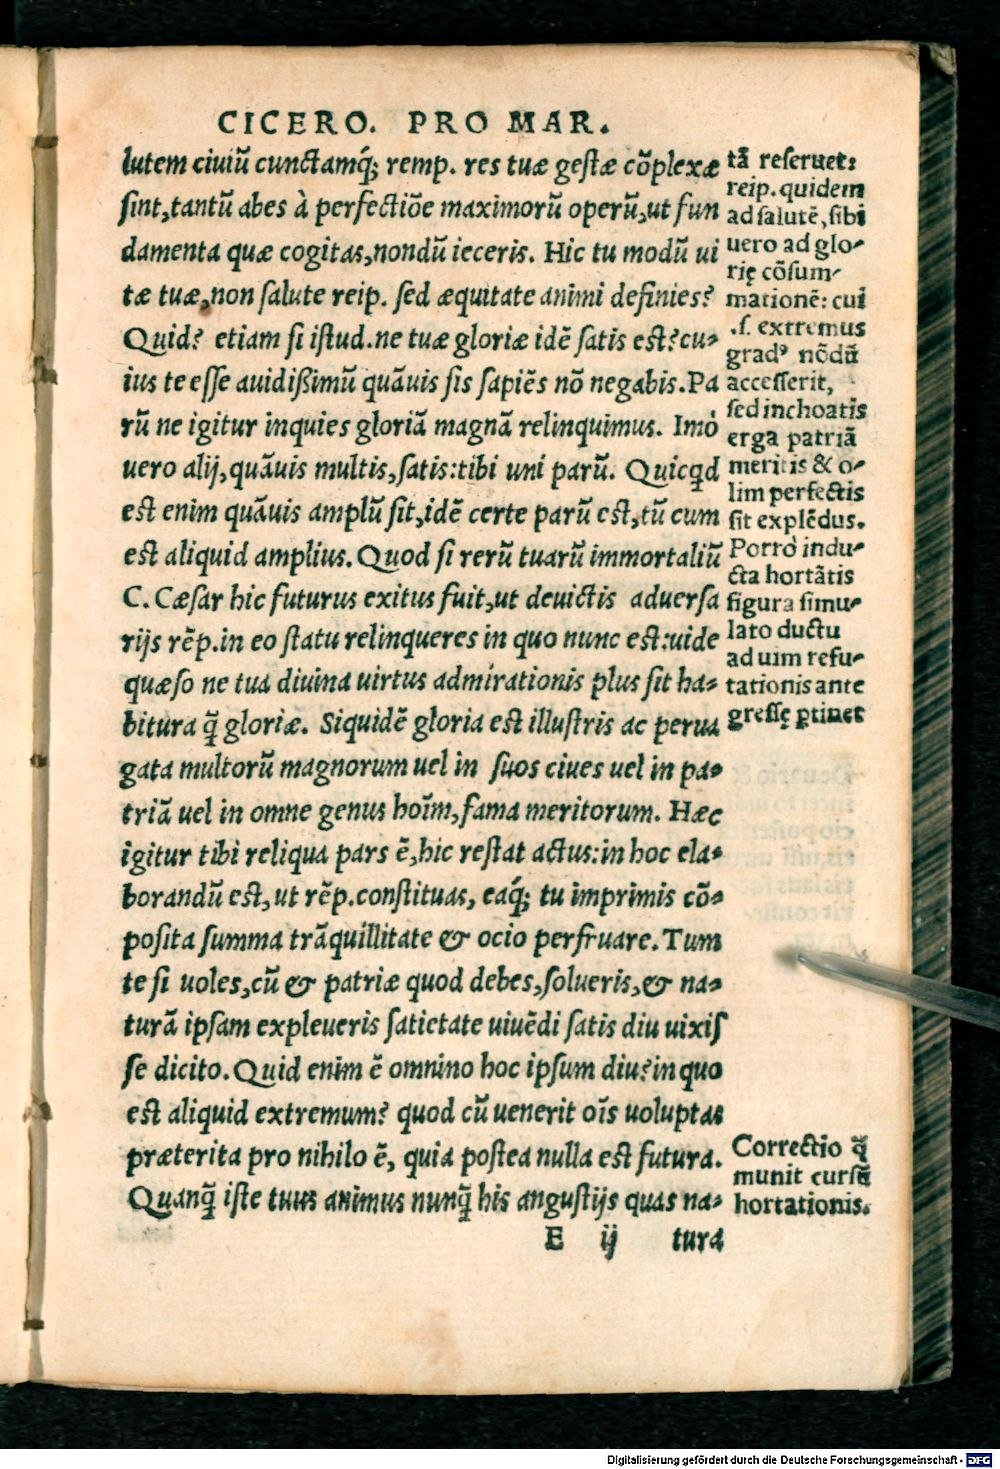 CICERO. PRO MAR.
lutem ciuiū cunctamq́; remp. res tuæ gestæ cõplexæ
sint, tantū abes à perfectiõe maximorū operū, ut fun
damenta quæ cogitas, nondū ieceris. Hic tu modū ui
tæ tuæ, non salute reip. sed æquitate animi definies?
Quid? etiam si istud. ne tuæ gloriæ idē satis est? cu-
ius te esse auidißimū quãuis sis sapiēs nõ negabis. Pa
rū ne igitur inquies gloriã magnã relinquimus. Imò
uero alij, quãuis multis, satis: tibi uni parū. Quicꝗd
est enim quãuis amplū sit, idē certe parū est, tū cum
est aliquid amplius. Quod si rerū tuarū immortaliū
C. Cæsar hic futurus exitus fuit, ut deuictis aduersa
rijs rēp. in eo statu relinqueres in quo nunc est: uide
quæso ne tua diuina uirtus admirationis plus sit ha-
bitura ꝗ̃ gloriæ. Siquidē gloria est illustris ac perua
gata multorū magnorum uel in suos ciues uel in pa-
triã uel in omne genus hoīm, fama meritorum. Hæc
igitur tibi reliqua pars ē, hic restat actus: in hoc ela-
borandū est, ut rēp. constituas, eaq́; tu imprimis cõ-
posita summa trãquillitate & ocio perfruare. Tum
te si uoles, cū & patriæ quod debes, solueris, & na-
turã ipsam expleueris satietate uiuēdi satis diu uixis
se dicito. Quid enim ē omnino hoc ipsum diu? in quo
est aliquid extremum? quod cū uenerit oīs uoluptas
præterita pro nihilo ē, quia postea nulla est futura.
Quanꝗ̃ iste tuus animus nunꝗ̃ his angustijs quas na-
E ij tura
tã reseruet:
reip. quidem
ad salutē, sibi
uero ad glo-
rię cõsum-
mationē: cui
.s. extremus
gradꝰ nõdũ
accesserit,
sed inchoatis
erga patriã
meritis & o-
lim perfectis
sit explēdus.
Porrò indu-
cta hortãtis
figura simu-
lato ductu
ad uim refu-
tationis ante
gressę ꝑtinet
Correctio ꝗ̃
munit cursũ
hortationis.
Digitalisierung gefördert durch die Deutsche Forschungsgemeinschaft - DFG